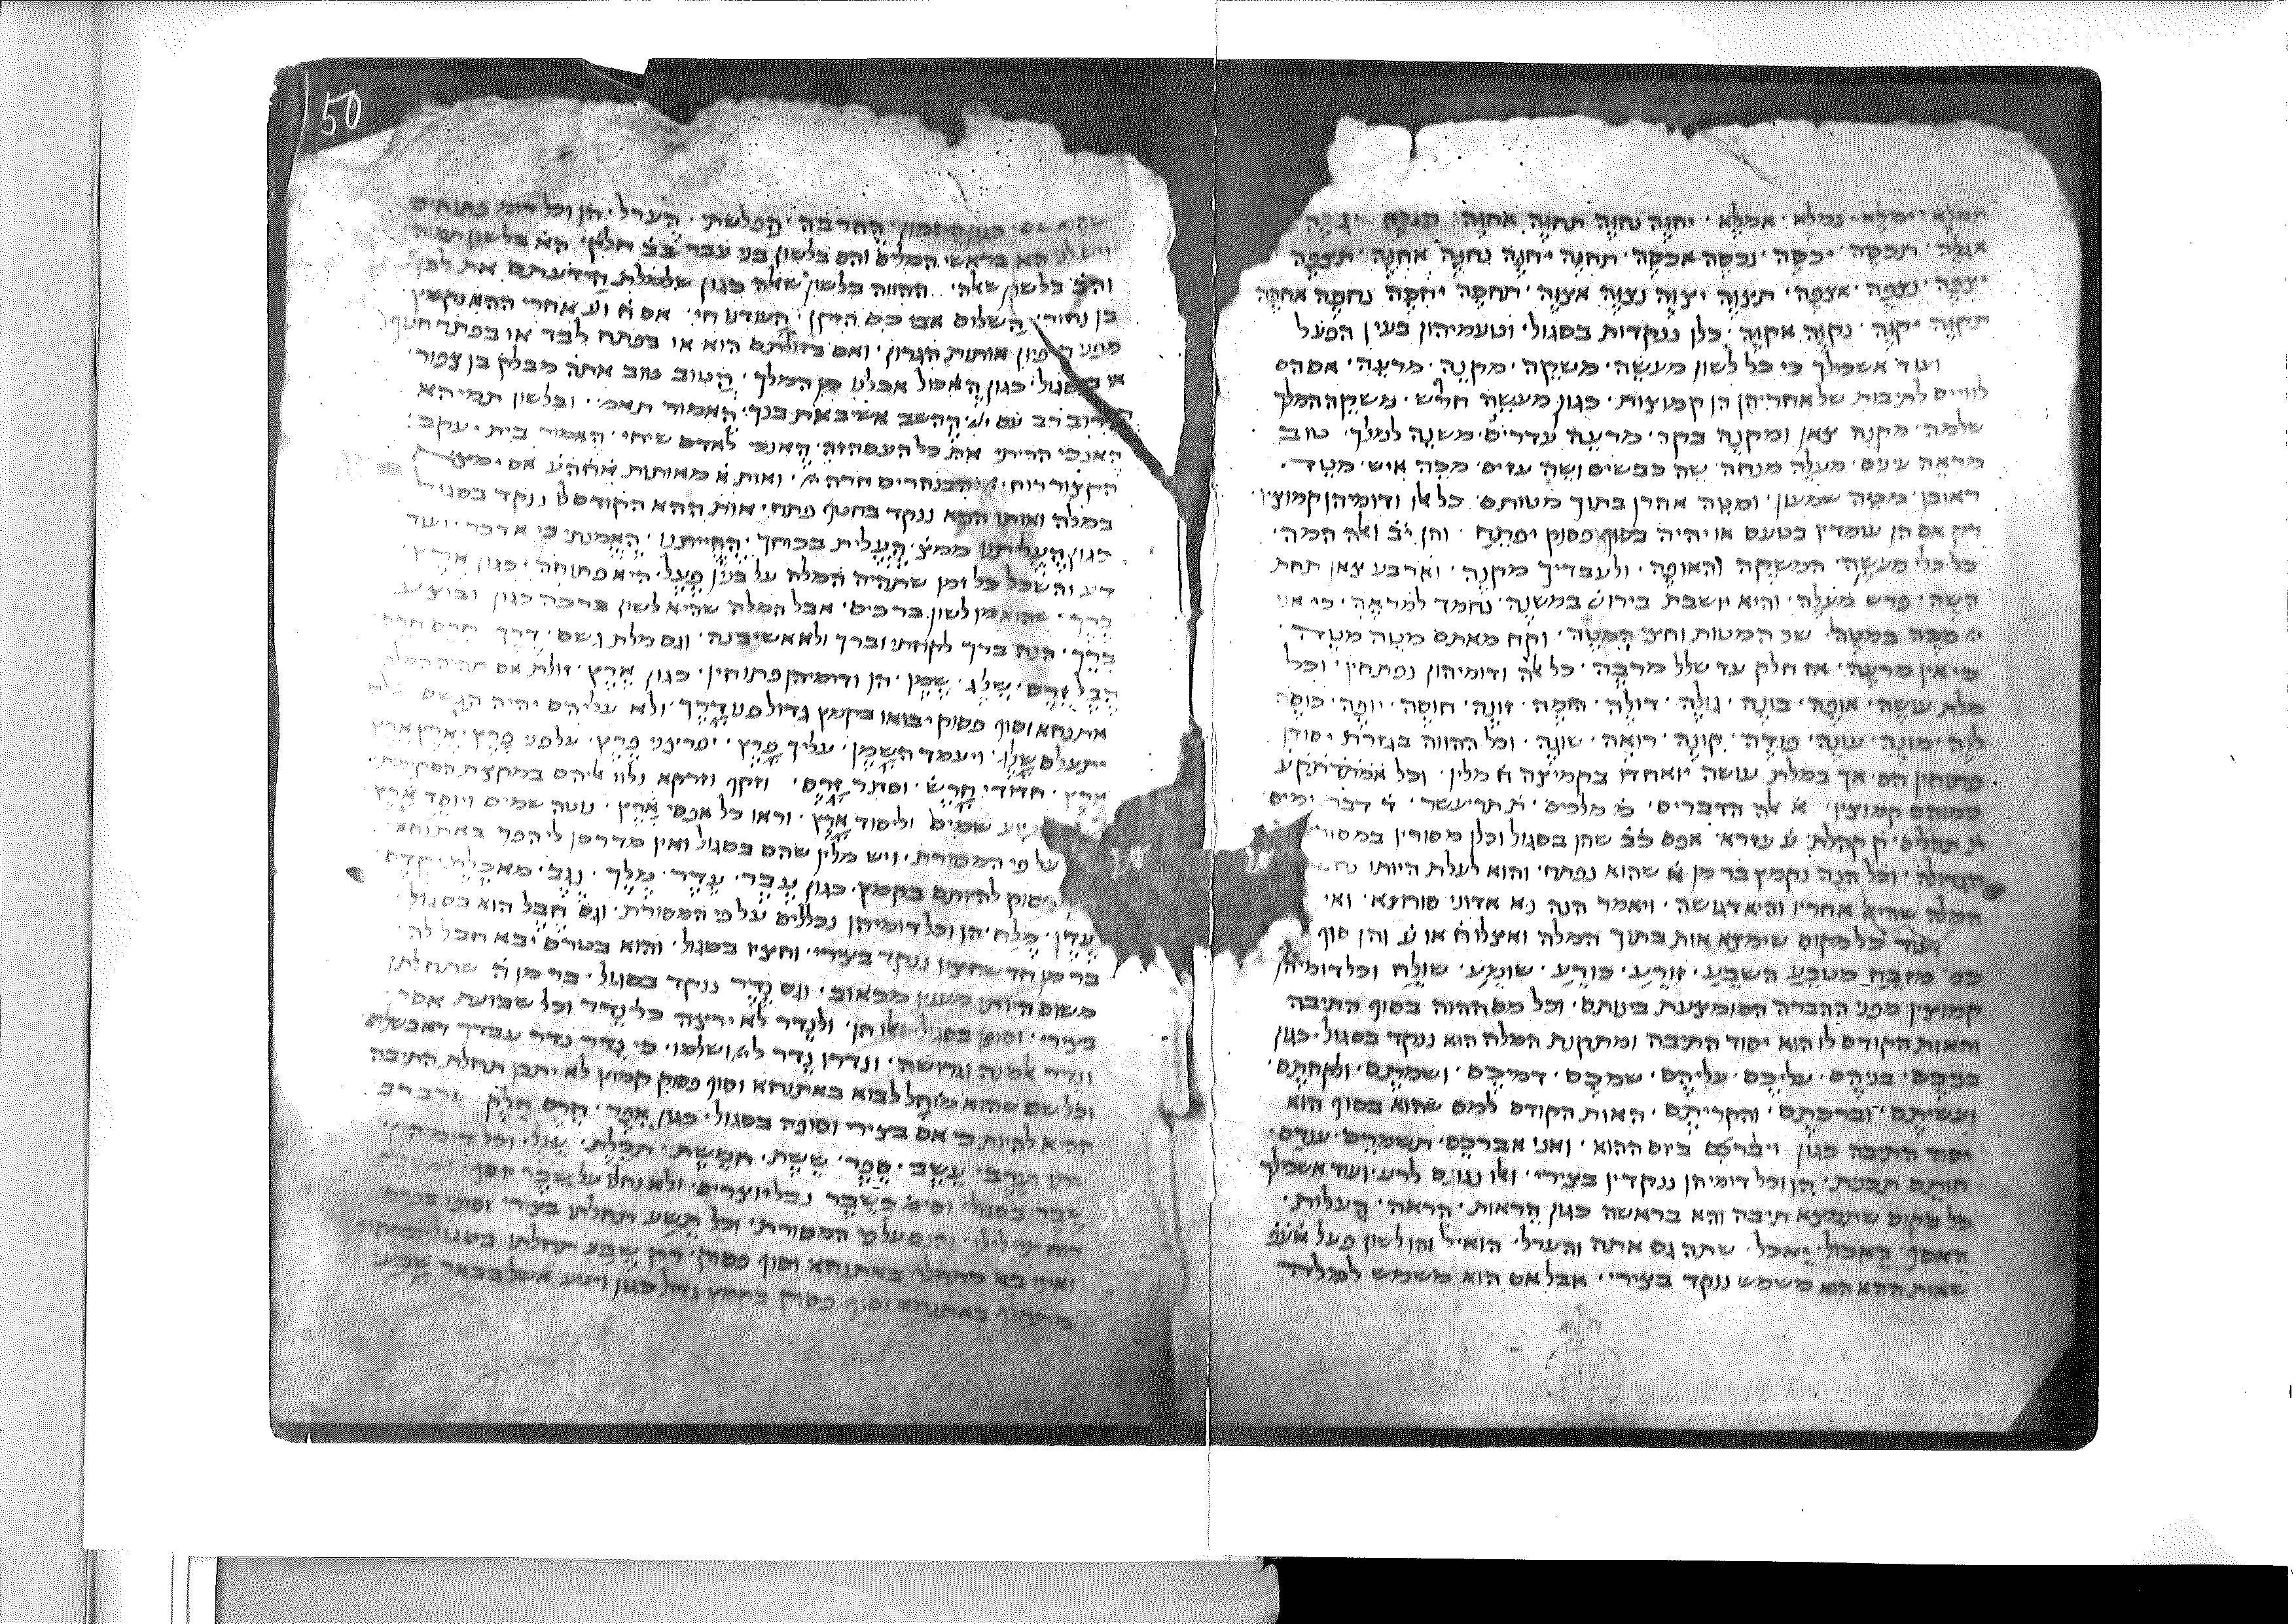 תמלא · ימלא · נמלא · אמלא · יחוה נחוה תחוה אחוה
אגלה · תכסה · יכסה · נכסה אכסה · תחנה יחנה נחנה אחנה · תצפה
יצפה · נצפה · אצפה · תצוה יצוה נצוה אצוה · תחסה יחסה נחסה אחסה
תקוה יקוה · נקוה אקוה · כלן ננקדות בסגול · וטעמיהון בעין הפעל
ועוד אשכילך כי כל לשון מעשה · משקה · מקנה · מרעה · אם הם
לוויים לתיבות שלאחריהן הן קמוצות · כגון מעשה חרש · משקה המלך
שלמה · מקנה צאן ומקנה בקר · מרעה עדרים · משנה למלך · טוב
מראה עינים · מעלה מנחה · שה כבשים ושה עזים · מכה איש · מטה
ראובן · מטה שמעון · ומטה אהרן בתוך מטותם · כל אלו ודומיהן קמוצין
רק אם הן עומדין בטעם או יהיה בסוף פסוק יפתח · והן י̇ב̇ ואלה המה ·
כל כלי מעשה · המשקה והאופה · ולעבדיך מקנה · וארבע צאן תחת
השה · פרש מעלה · והיא יושבת בירוש במשנה · נחמד למראה · כי אני
מכה במטה · שני המטות וחצי המטה · וקח מאתם מטה מטה
כי אין מרעה · אז חלק עד שלל מרבה · כל אלה ודומיהון נפתחין · וכל
מלת עושה · אופה · בונה · גולה · דולה · הומה · זונה · חוסה · יופה · כוסה
לוה · מונה · עונה · פודה · קונה · רואה · שוגה · וכל ההווה בגזרת יסודן
פתוחין הם · אך במלת עושה יואחדו בקמיצה ח̇ מלין · וכל
כמוהם קמוצין · א̇ אלה הדברים · מ̇ מלכים · ת̇ תרי עשר · ד̇ דברי ימים
ת̇ תהלים · ק̇ קהלת · ע̇ עזרא · אפס כ̇ב̇ שהן בסגול וכלן מסורין במסורת
הגדולה · וכל הנה נקמץ בר מן א̇ שהוא נפתח · והוא לעלת היותו
המלה שהיא אחריו והיא דגושה · ויאמר הנה נא אדוני סורו נא · ואי
ועוד כל מקום שימצא אות בתוך המלה ואצלו ח̇ או ע̇ והן סוף
כמ̇ מזבח מטבע השבע · זורע · כורע · שומע · שולח וכל דומיהן
קמוצין מפני ההברה הממוצעת בינותם · וכל מם ההוה בסוף התיבה
והאות הקודם לו הוא יסוד התיבה ומתקנת המלה הוא ננקד בסגול · כגון
בניכם · בניהם · עליכם · עליהם · שמכם · דמיכם · ושמתם · ולקחתם ·
ועשיתם · וברכתם · והקריתם · האות הקודם למם שהוא בסוף הוא
יסוד התיבה כגון ויברכם ביום ההוא · ואני אברכם · תשמרם · עודם ·
חותם תכנת · הן וכל דומיהן ננקדין בצירי · ואלו נגונם לרע · ועוד אשכילך
כל מקום שתמצא תיבה והא בראשה כגון הראות · הראה · העלות ·
האסף · האכול · יאכל · שתה גם אתה והערל · הואיל והן לשון פעל
שאות ההא הוא משמש ננקד בצירי · אבל אם הוא משמש למלה
שהיא שם · כגון ההמון · החרבה · הפלשתי · הערל · הן וכל דומ̇ פתוחים
ויש לנו הא בראשי המלים והם בלשון בני עבר בג̇ חלק · הא בלשון תמיה ·
והב̇ בלשון שאלה · ההווה בלשון שאלה כגון שאלת הידעתם את לבן
בן נחור · השלום אביכם הזקן · העודנו חי · אם ח̇ וע̇ אחרי ההא נקמץ
מפני אותות הגרון · ואם בזולתם הוא או בפתח לבד או בפתח חטף
או בסגול · כגון האכול אכלנו מן המלך · הטוב טוב אתה מבלק בן צפור ·
הרוב רב עם · ההשב אשיב את בנך · האמור תאמ̇ · ובלשון תמי הא
האנכי הריתי את כל העם הזה · האנכי לאדם שיחי · האמור בית יעקב ·
הקצור רוח · הבנהרים חרה · ואות א̇ מאותות א̇ח̇ה̇ע̇ אם ימצא
במלה ואותו ההא ננקד בחטף פתח · אות ההא הקודם לו ננקד בסגול
כגון העליתנו ממצ̇ · העלית בכחך · החייתנו · האמנתי כי אדבר · ועוד
דע והשכל כל זמן שתהיה המלה על בנין פעל · היא פתוחה · כגון ארץ ·
ברך · שהוא מן לשון ברכים · אבל המלה שהיא לשון ברכה כגון ובוצע
ברך · הנה ברך לקחתי וברך ולא אשיבנה · וגם מלת גשם · דרך
הבל · זרם · שלג · שמן · הן ודומיהן פתוחין · כגון ארץ · זולת אם תהיה המלה
אתנחא וסוף פסוק יבואו בקמץ גדול · דרך · ולא עליהם יהיה הגשם
יתעלם שלג · ויעמד השמן · עליך פרץ · יפריצני פרץ · על פני פרץ · ארץ ארץ
ארץ · חדודי חרש · וסתר זרם · וזקף וזרקא נלוו אליהם במקצת הפסוקים ·
שמים וליסוד ארץ · וראו כל אפסי ארץ · נוטה שמים ויוסד ארץ ·
על פי המסורת · ויש מלין שהם בסגול ואין מדרכן ליהפך באתנחא
פסוק להיותם בקמץ · כגון עבר · עדר · מלך · נגב · מאכלת · קדם ·
עדן · מלח · הן וכל דומיהן נכללים על פי המסורת · וגם חבל הוא בסגול ·
בר מן חד שחציו ננקד בצירי · וחציו בסגול · והוא בטרם יבא חבל לה ·
משום היותו מענין מכאוב · וגם נדר ננקד בסגול · בר מן ה̇ שתחלתן
בצירי · וסופן בסגול · ואלו הן · ולנדר לא ירצה · כל נדר וכל שבועת אסר ·
ונדר אלמנה וגרושה · ונדרו נדר ליי ושלמו · כי נדר נדר עבדך דאבשלום ·
וכל שם שהוא מוחל לבוא באתנחא וסוף פסוק קמוץ לא יתכן תחלת התיבה
ההיא להיות כי אם בצירי וסופה בסגול · כגון אפר · חרס · חלק · ערב רב
שתי וערב · עשב · ספר · ששת · חמשת · תכלת · עגל · וכל דומיהן ·
שבר בסגול · וסימ̇ כשבר נבל יוצרים · ולא נחלו על שבר יוסף ·
רוח · והגם על פי המסורת · וכל תשע תחלתו בצירי וסופו בפתח
ואינו בא מתחלף באתנחא וסוף פסוק · רק שבע תחלתו בסגול
מתחלף באתנחא וסוף פסוק בקמץ גדול · כגון ויטע אשל בבאר שבע
150